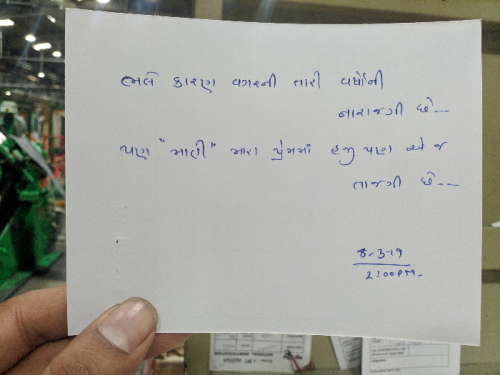 ભલે કારણ વગરની તારી વર્ષોની
નારાજગી છે--
પણ "માહી" મારા પ્રેમમાં હજી પણ એ જ
તાજગી છે--
8-3-19
2:00 PM.